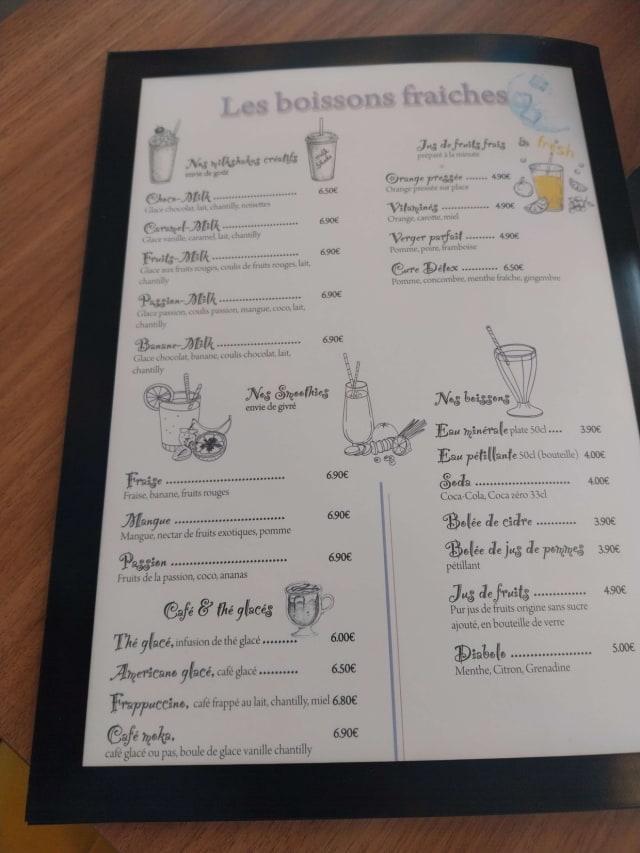 Les boissons fraîches
Nos milkshakes créatifs
envie de goût
milk
Shake
Choco-Milk ........................ 6.50€
Glace chocolat, lait, chantilly, noisettes
Caramel-Milk ...................... 6.90€
Glace vanille, caramel, lait, chantilly
Fruits-Milk ........................ 6.90€
Glace aux fruits rouges, coulis de fruits rouges, lait,
chantilly
Passion-Milk ....................... 6.90€
Glace passion, coulis passion, mangue, coco, lait,
chantilly
Banane-Milk ....................... 6.90€
Glace chocolat, banane, coulis chocolat, lait,
chantilly
Nos Smoothies
envie de givré
Fraise ................................ 6.90€
Fraise, banane, fruits rouges
Mangue ............................. 6.90€
Mangue, nectar de fruits exotiques, pomme
Passion .............................. 6.90€
Fruits de la passion, coco, ananas
Café & thé glacés
Thé glacé, infusion de thé glacé ......... 6.00€
Americano glacé, café glacé .......... 6.50€
Frappuccino, café frappé au lait, chantilly, miel 6.80€
Café moka, 6.90€
café glacé ou pas, boule de glace vanille chantilly
Jus de fruits frais
préparé à la minute
fresh
Orange pressée ...... 4.90€
Orange pressée sur place
Vitaminés .............. 4.90€
Orange, carotte, miel
Verger parfait ........ 4.90€
Pomme, poire, framboise
Cure Détox .......... 6.50€
Pomme, concombre, menthe fraîche, gingembre
Nos boissons
Eau minérale plate 50cl .... 3.90€
Eau pétillante 50cl (bouteille) 4.00€
Soda .......................... 4.00€
Coca-Cola, Coca zéro 33cl
Bolée de cidre ........... 3.90€
Bolée de jus de pommes 3.90€
pétillant
Jus de fruits .............. 4.90€
Pur jus de fruits origine sans sucre
ajouté, en bouteille de verre
Diabolo ...................... 5.00€
Menthe, Citron, Grenadine